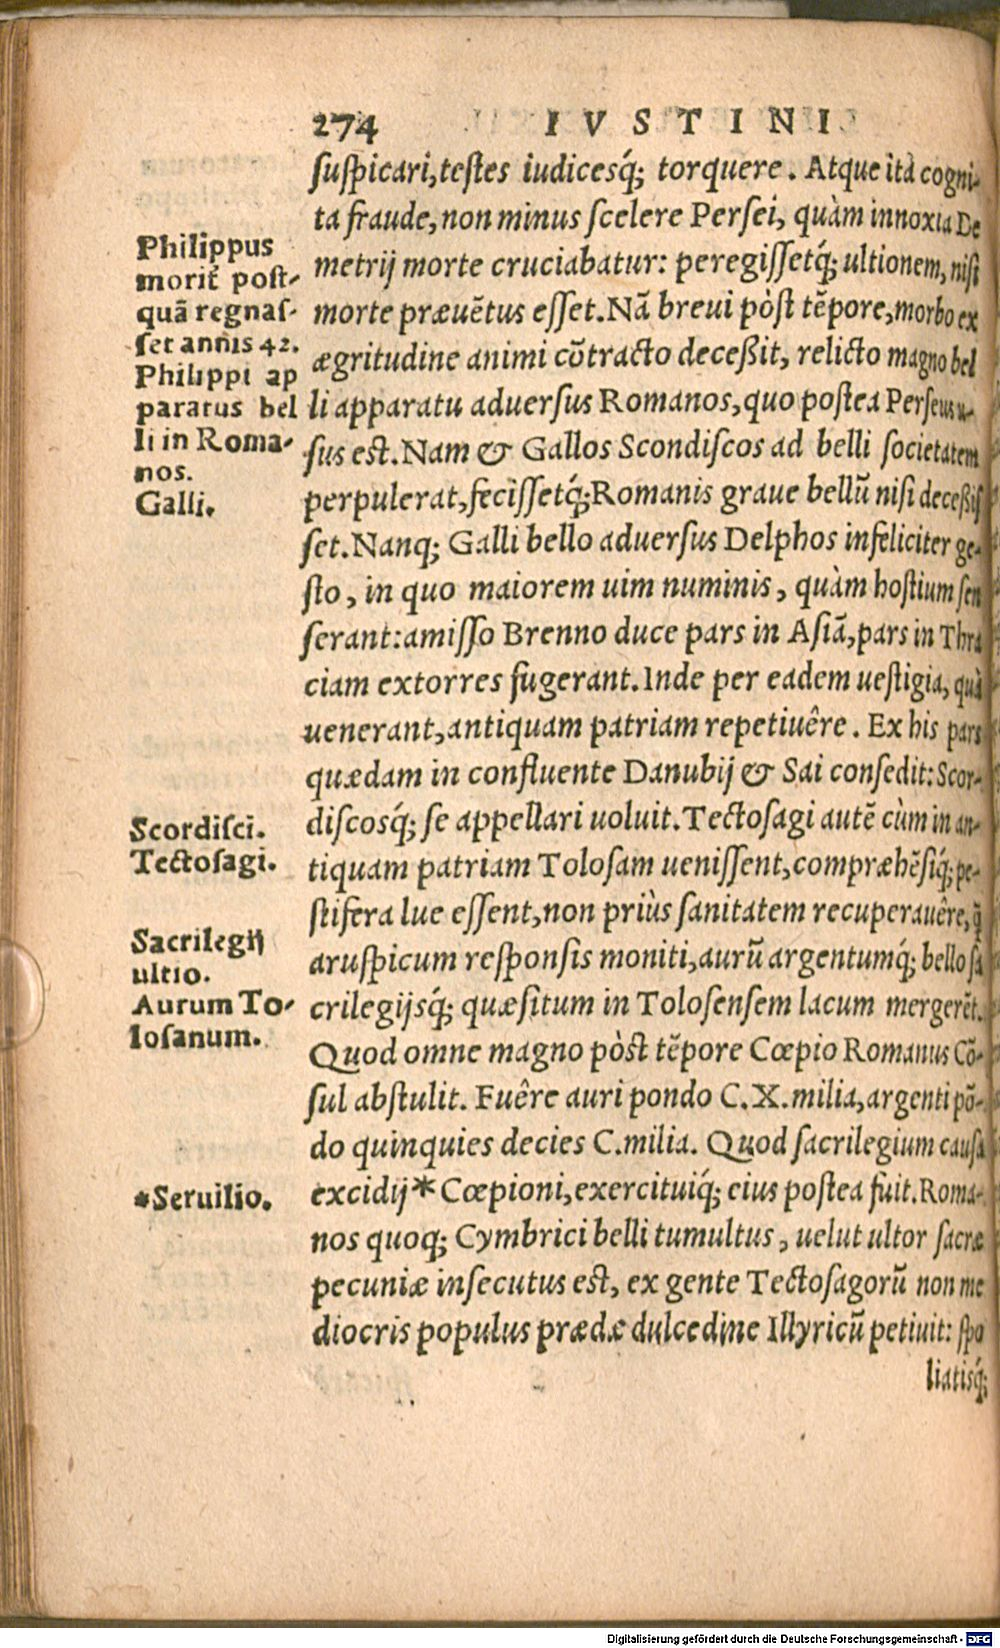 274 IVSTINI
suspicari, testes iudicesq́; torquere. Atque ita cogni-
ta fraude, non minus scelere Persei, quàm innoxia De
metrij morte cruciabatur: peregissetq́; ultionem, nisi
morte præuētus esset. Nā breui pòst tēpore, morbo ex
ægritudine animi cōtracto deceßit, relicto magno bel
li apparatu aduersus Romanos, quo postea Perseus u-
sus est. Nam & Gallos Scondiscos ad belli societatem
perpulerat, fecissetq́; Romanis graue bellū nisi deceßis
set. Nanq; Galli bello aduersus Delphos infeliciter ge-
sto, in quo maiorem uim numinis, quàm hostium sen
serant: amisso Brenno duce pars in Asiā, pars in Thra
ciam extorres fugerant. Inde per eadem uestigia, quà
uenerant, antiquam patriam repetiuêre. Ex his pars
quædam in confluente Danubij & Sai consedit: Scor-
discosq́; se appellari uoluit. Tectosagi autē cùm in an-
tiquam patriam Tolosam uenissent, compræhēsiq́; pe-
stifera lue essent, non priùs sanitatem recuperauêre, q̃
aruspicum responsis moniti, aurū argentumq́; bello sa
crilegijsq́; quæsitum in Tolosensem lacum mergerēt.
Quod omne magno pòst tēpore Cœpio Romanus Cō-
sul abstulit. Fuêre auri pondo C.X. milia, argenti pō-
do quinquies decies C. milia. Quod sacrilegium causa
excidij * Cœpioni, exercituiq́; eius postea fuit. Roma-
nos quoq; Cymbrici belli tumultus, uelut ultor sacræ
pecuniæ insecutus est, ex gente Tectosagorū non me
diocris populus prædæ dulcedine Illyricū petiuit: spo
liatisq́;
Philippus
morit̃ post-
quā regnas-
set annis 42.
Philippi ap
paratus bel
li in Roma-
nos.
Galli.
Scordisci.
Tectosagi.
Sacrilegij
ultio.
Aurum To-
losanum.
*Seruilio.
Digitalisierung gefördert durch die Deutsche Forschungsgemeinschaft - DFG